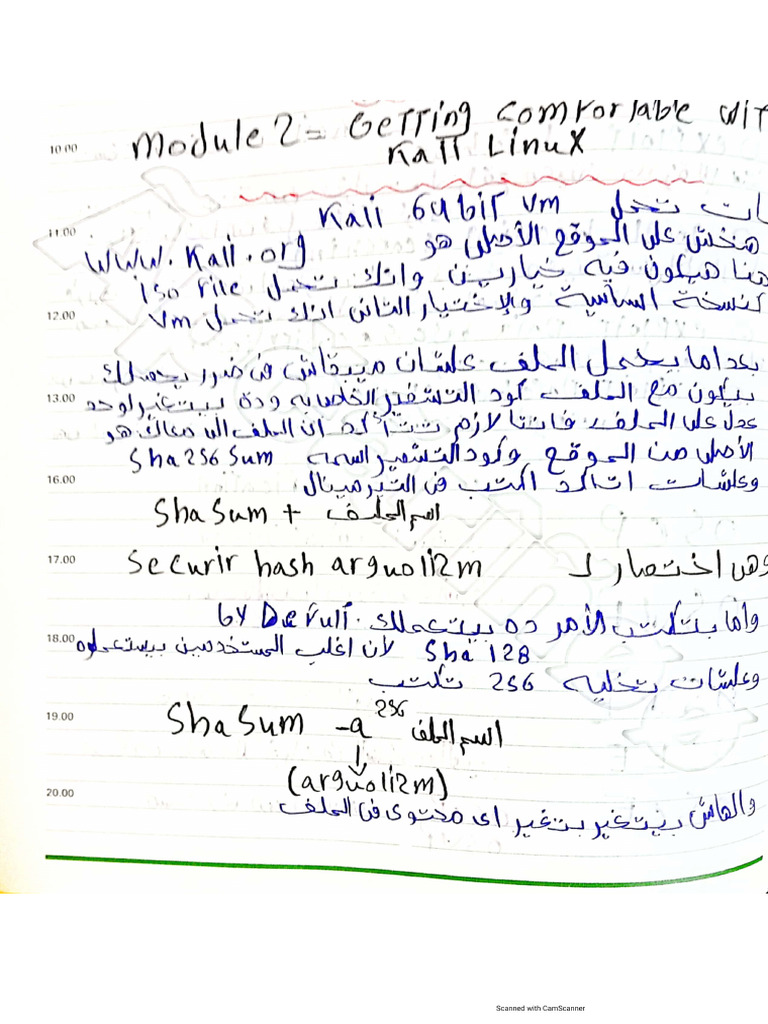 Module 2 = Getting Comfortable Wit
Kali Linux
10.00
تحمل Kali 64 bit Vm
11.00
هنخش على الموقع الأصلى هو www.Kali.org
هنا هيكون فيه خيارين وانك تحمل iso file
12.00
كنسخة اساسية والإختيار التانى انك تحمل Vm
بعدما يحمل الملف علشان ميبقاش فى ضرر يحصلك
13.00
بيكون مع الملف كود التشفير الخاص به وده بيتغير لو حد
عدل على الملف فانتا لازم تتأكد ان الملف الى معاك هو
الأصلى من الموقع وكود التشفير اسمه Sha256Sum
16.00
وعلشان اتاكد اكتب فى التيرمينال
ShaSum + اسم الملف
17.00
وهى اختصار لـ Securir hash arguolizm
واما بتكتب الأمر ده بيتعملك by Defult
18.00
Sha 128 لأن اغلب المستخدمين بيستعملوه
وعلشان تخليه 256 تكتب
19.00
ShaSum -a 256 اسم الملف
(arguolizm)
20.00
والهاش بيتغير بتغير اى محتوى فى الملف
Scanned with CamScanner